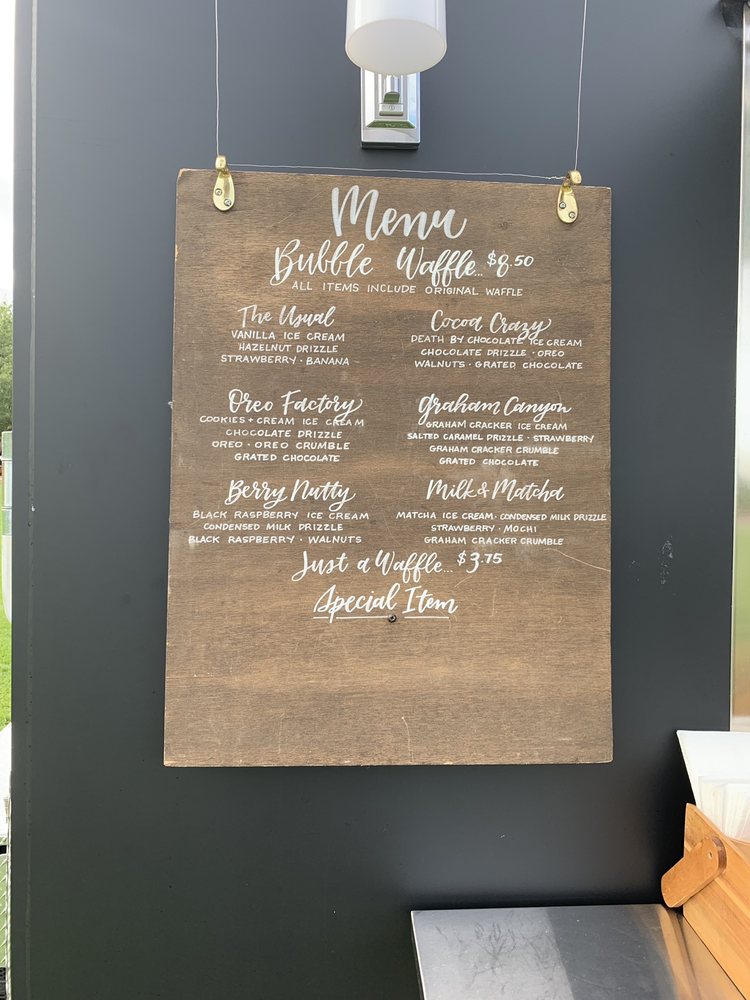 Menu
Bubble Waffle... $8.50
ALL ITEMS INCLUDE ORIGINAL WAFFLE
The Usual
VANILLA ICE CREAM
HAZELNUT DRIZZLE
STRAWBERRY · BANANA
Cocoa Crazy
DEATH BY CHOCOLATE ICE CREAM
CHOCOLATE DRIZZLE · OREO
WALNUTS · GRATED CHOCOLATE
Oreo Factory
COOKIES + CREAM ICE CREAM
CHOCOLATE DRIZZLE
OREO · OREO CRUMBLE
GRATED CHOCOLATE
Graham Canyon
GRAHAM CRACKER ICE CREAM
SALTED CARAMEL DRIZZLE · STRAWBERRY
GRAHAM CRACKER CRUMBLE
GRATED CHOCOLATE
Berry Nutty
BLACK RASPBERRY ICE CREAM
CONDENSED MILK DRIZZLE
BLACK RASPBERRY · WALNUTS
Milk & Matcha
MATCHA ICE CREAM · CONDENSED MILK DRIZZLE
STRAWBERRY · MOCHI
GRAHAM CRACKER CRUMBLE
Just a Waffle... $3.75
Special Item